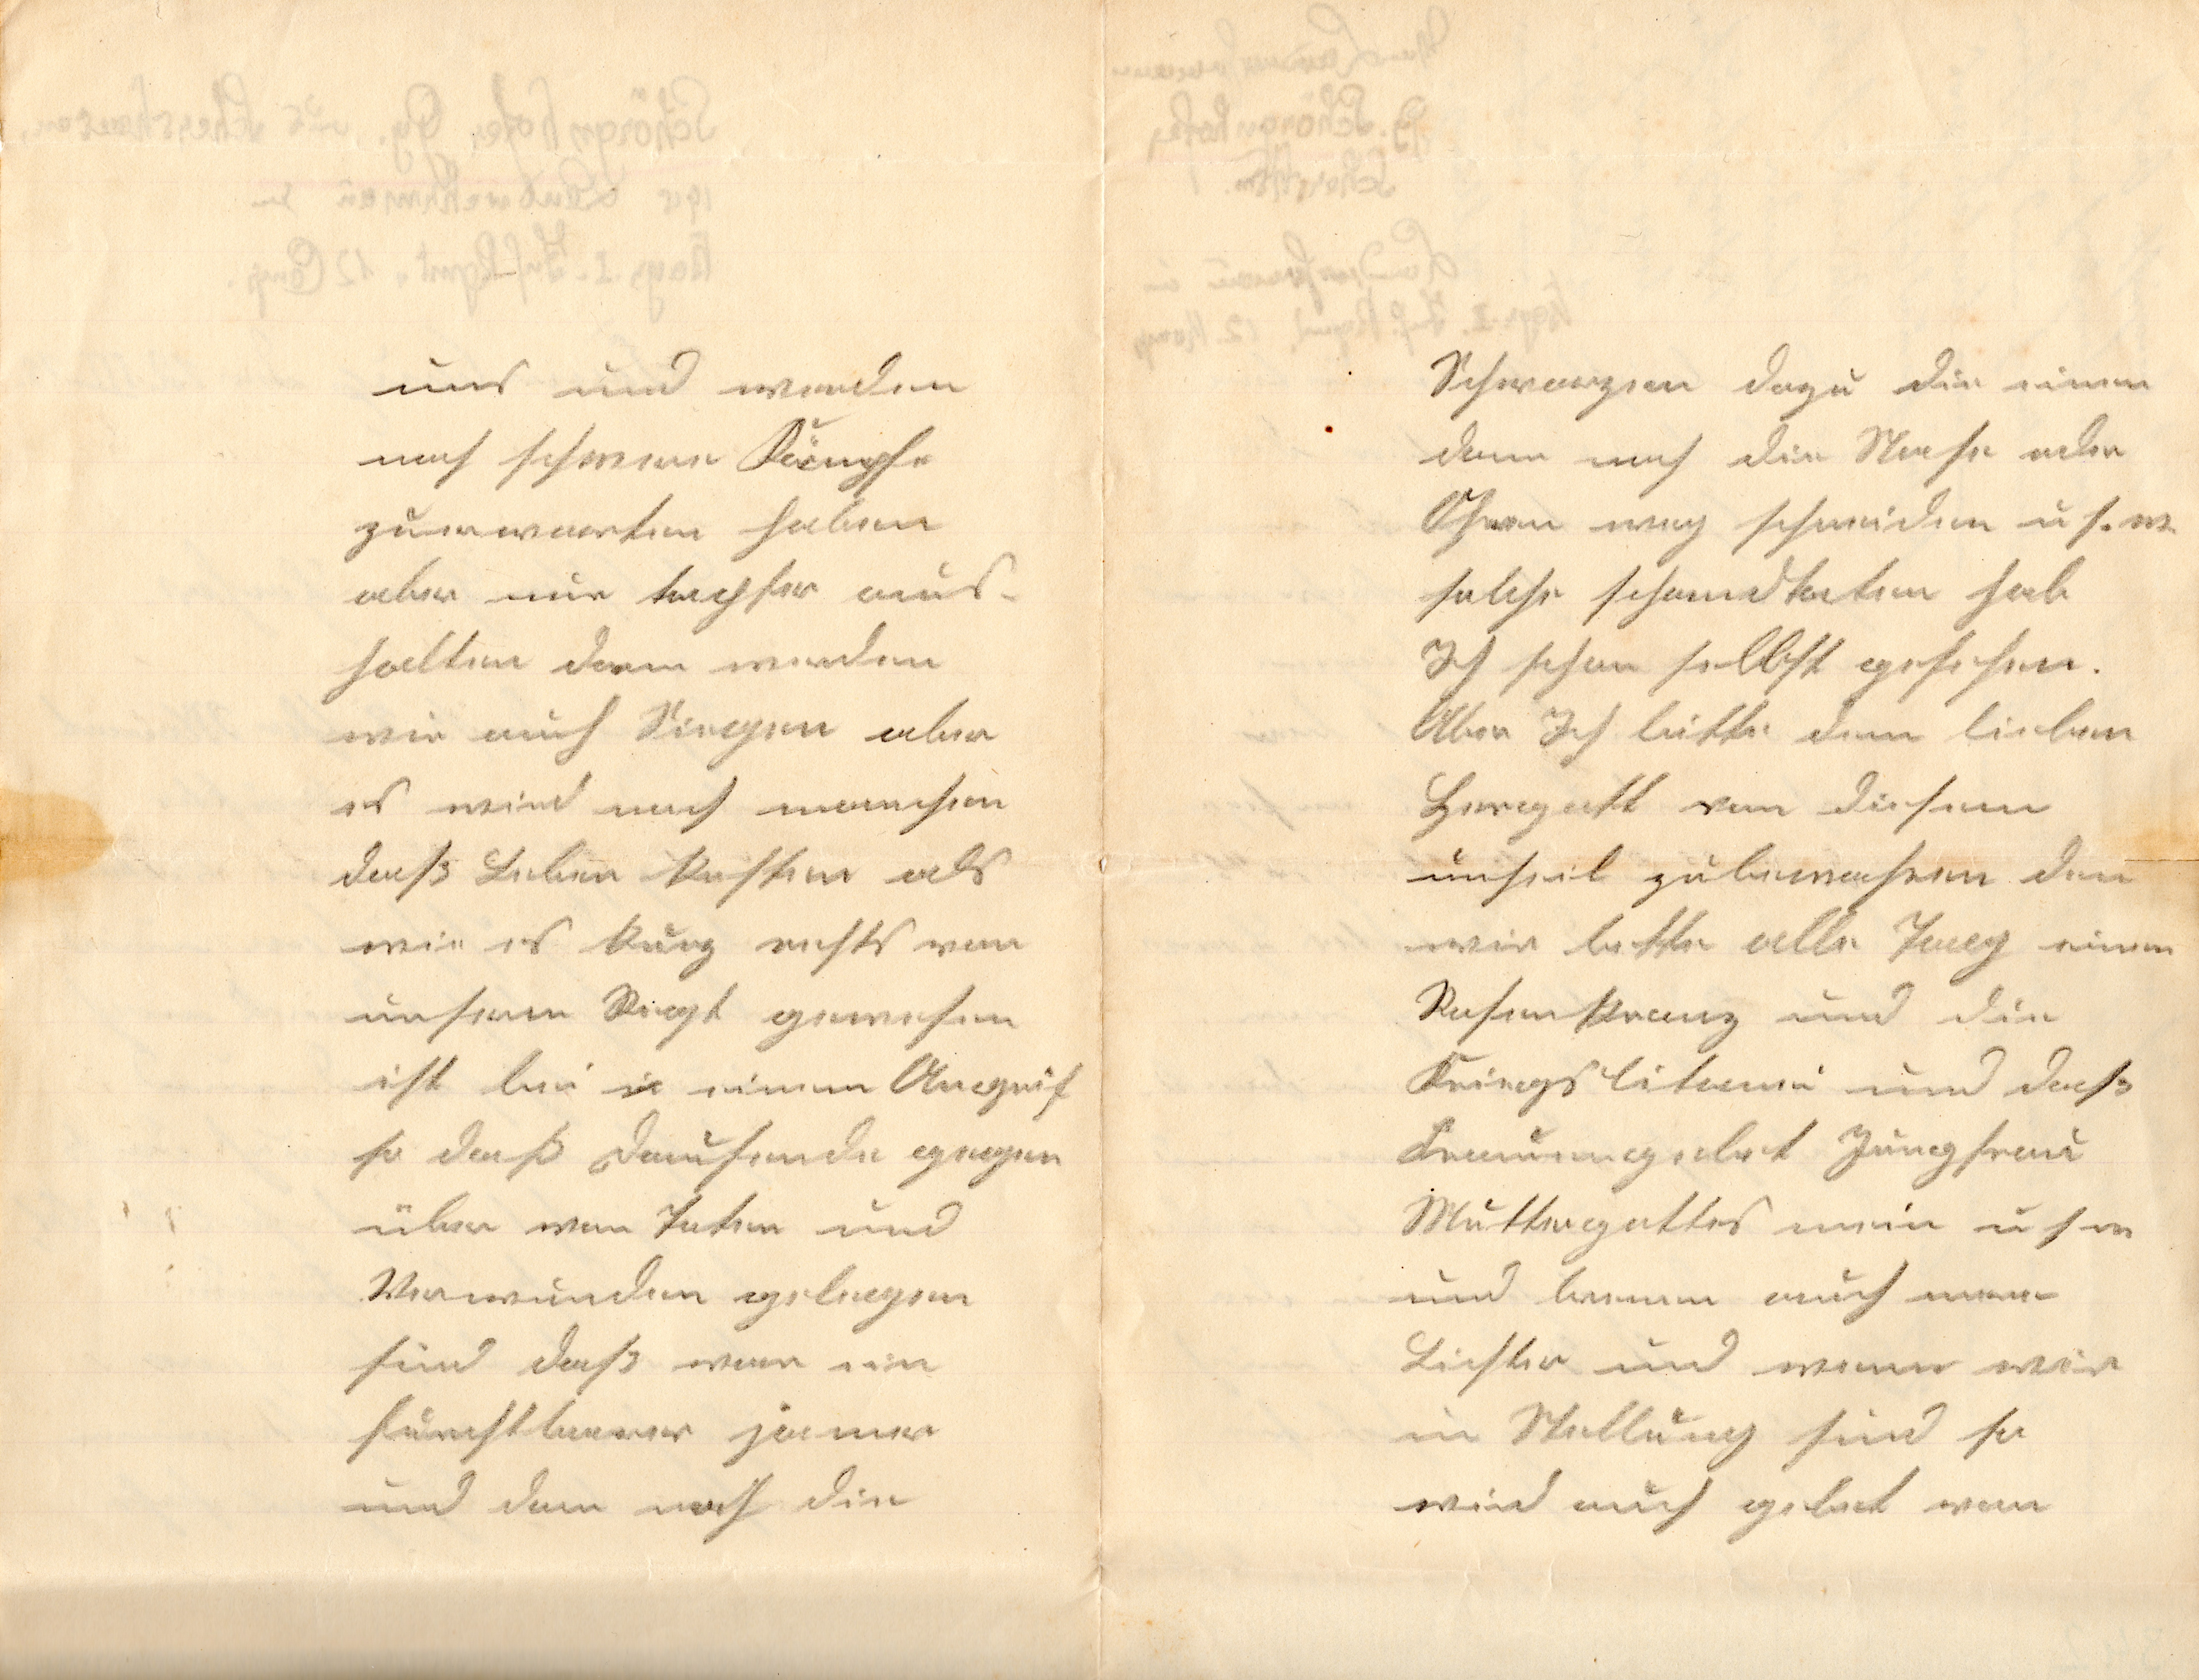 uns und werden
noch schwere Kämpfe
zuerwarten haben
aber nur tapfer aus-
halten dann werden
wir auch Siegen aber
es wird noch manchen
daß Leben kosten als
wie es kurz rechts von
unseren Regt gewesen
ist bei einem Angrif
so daß Dausende gegen
über von Toten und
Verwunden gelegen
sind daß war ein
furchtbarer jamer
und dan noch die
Schwarzen dazu die einen
dann noch die Nase oder
Ohren weg schneiden u s. w.
solche schandtaten hab
Ich schon selbst gesehen.
Aber Ich bitte dem lieben
Herrgott von diesem
unheil zubewahren den
wir bette alle Tag einen
Rosenkranz und die
Kriegslitanei und daß
Frauengebet Jungfrau
Muttergottes mein u s w
und brenen auch
Lichter und wenn wir
in Stellung sind so
wird auch gebet von